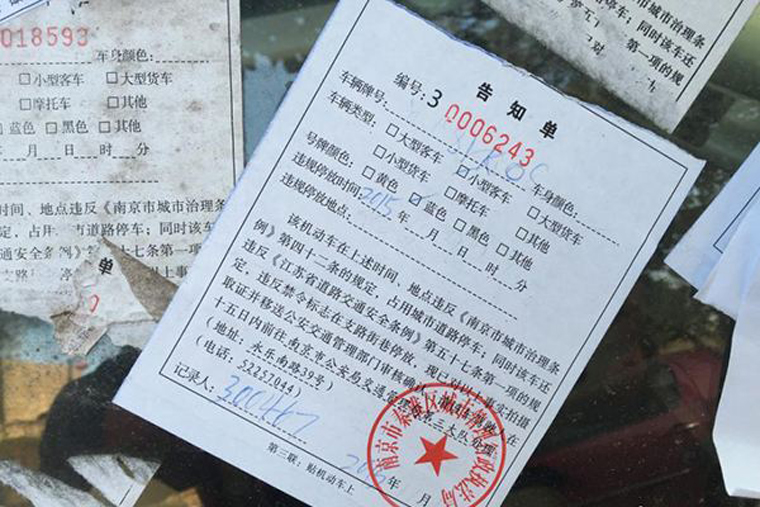 018593
车身颜色:
□小型客车 □大型货车
□摩托车 □其他
蓝色 □黑色 □其他
年 月 日 时 分
时间、地点违反《南京市城市治理条
定,占用 市道路停车;同时该车还
通安全条例》 十七条第一项的
支路 停
单
市城市治理条
停车;同时该车还
第一项的规
对
告知单
编号:3 0006243
车辆牌号:
车身颜色:
车辆类型: □大型客车 □小型客车 □大型货车
□小型货车 □摩托车 □其他
号牌颜色: □黄色 ☑蓝色 □黑色 □其他
违规停放时间: 2015 年 月 日 时 分
违规停放地点:
该机动车在上述时间、地点违反《南京市城市治理条
例》第四十二条的规定,占用城市道路停车;同时该车还
违反《江苏省道路交通安全条例》第五十七条第一项的规
定,违反禁令标志在支路街巷停放,现已对以上事实拍摄
取证并移送公安交通管理部门审核确认,
十五日内前往南京市公安局交通管理 第三大队
(地址:永乐南路39号)
(电话:52257044)
记录人: 300467
南京市秦淮区城市 行政执法局
年 月
第三联:贴机动车上